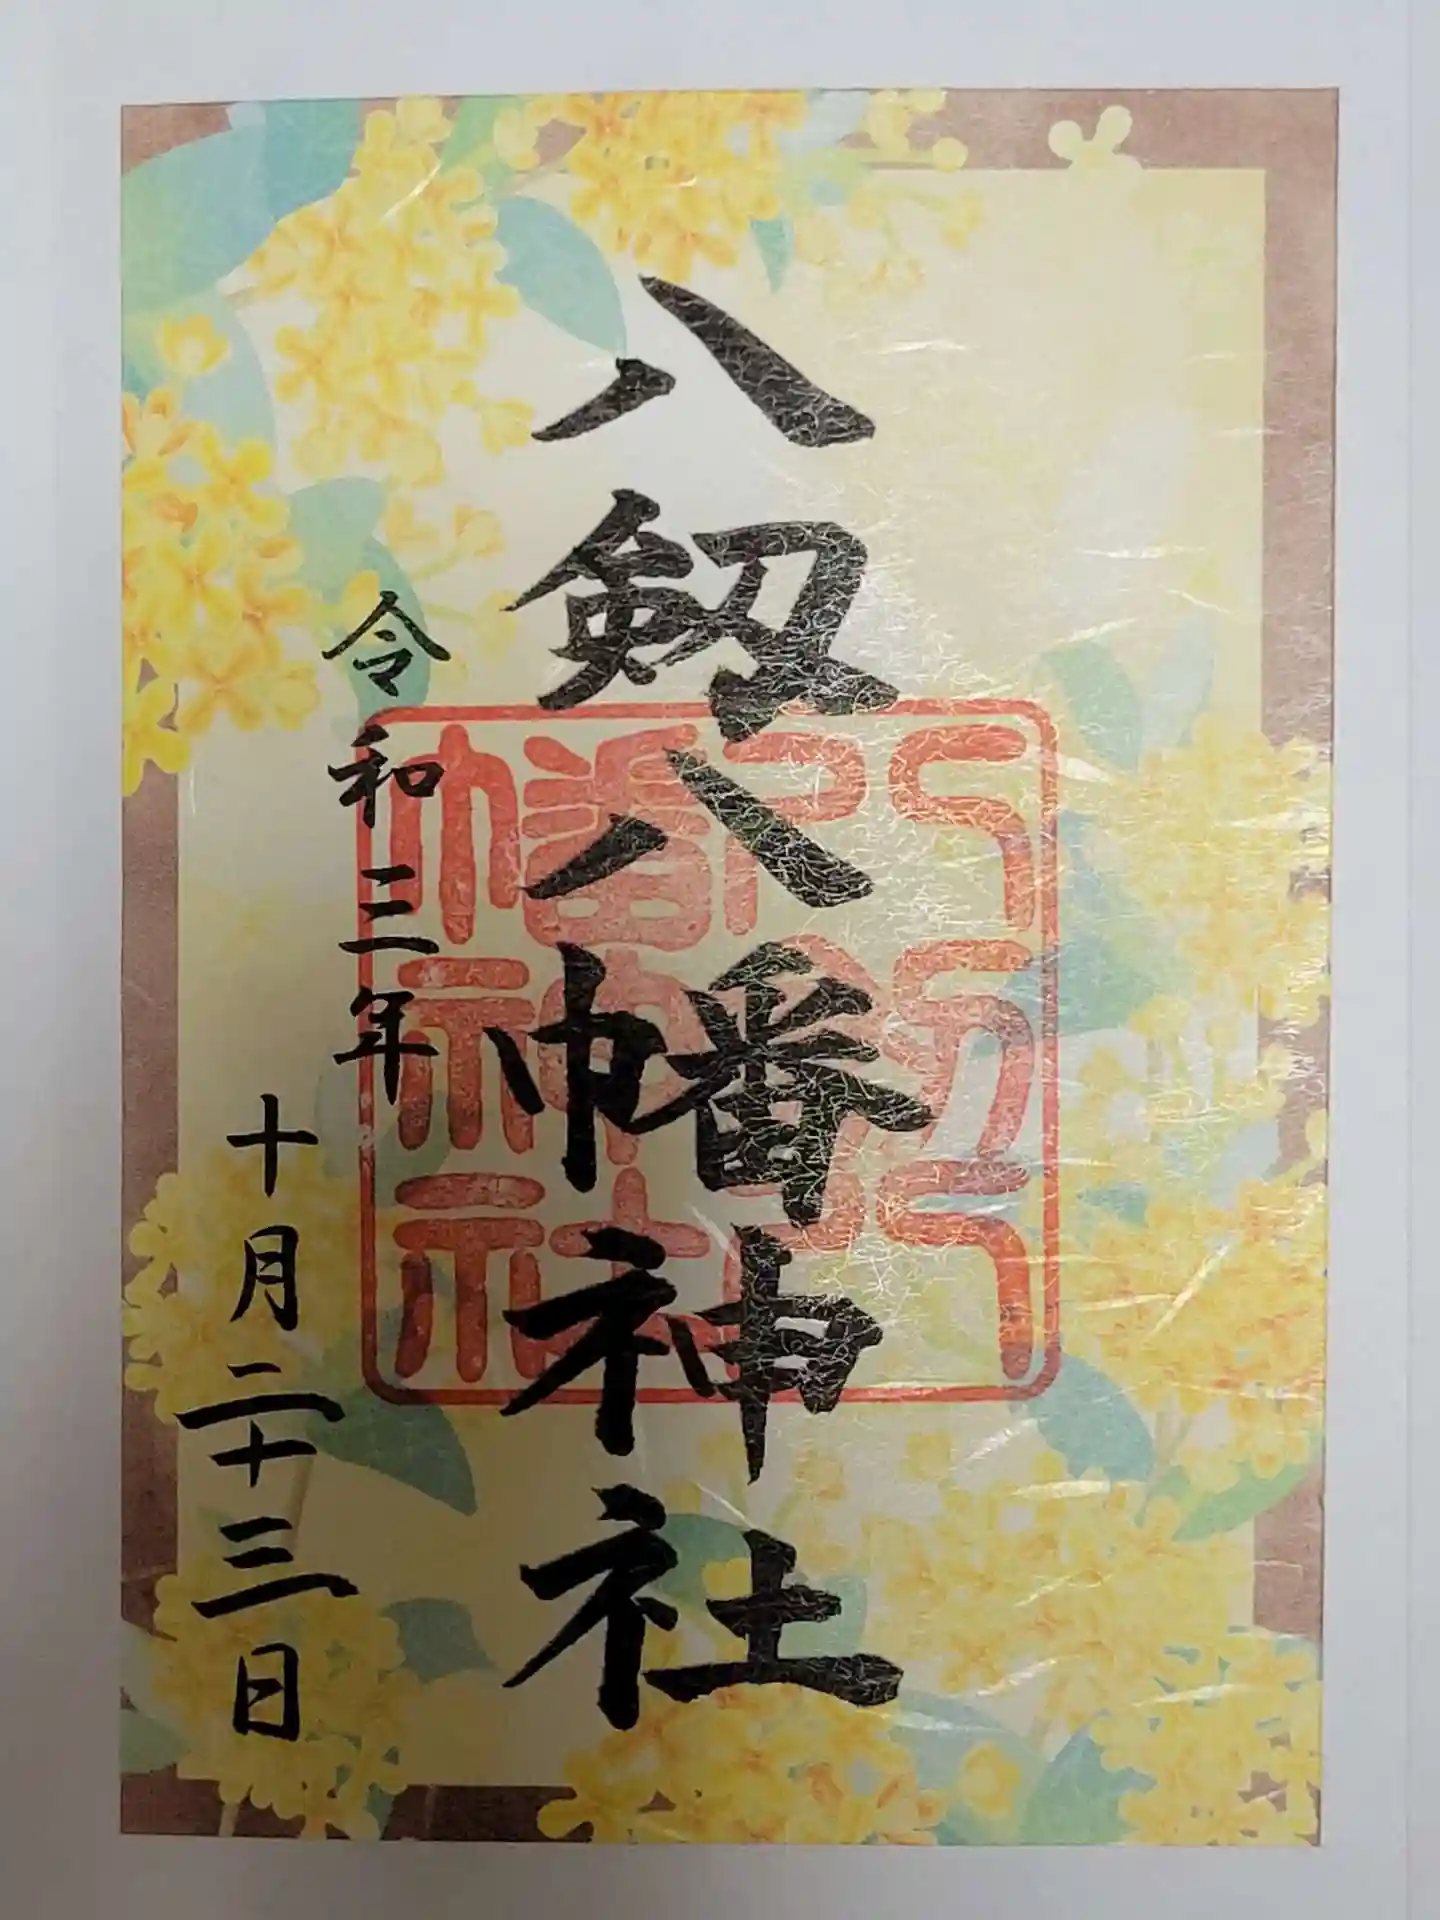 八剱八幡神社
八剱八
幡神社
令和三年
十月二十三日